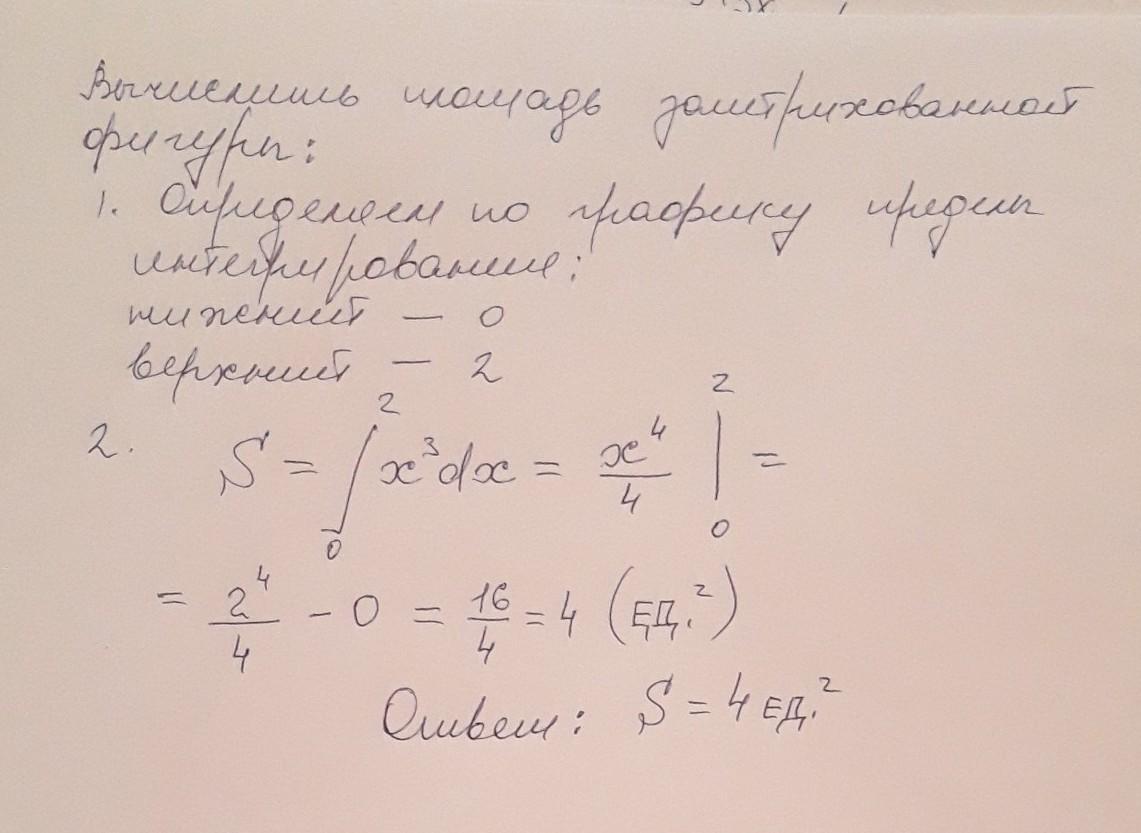 Вычислить площадь заштрихованной
фигуры:
1. Определяем по графику пределы
интегрирования:
нижний — 0
верхний — 2
2. S = ∫₀² x³dx = x⁴/4 |₀² =
= 2⁴/4 - 0 = 16/4 = 4 (ЕД.²)
Ответ: S = 4 ЕД.²